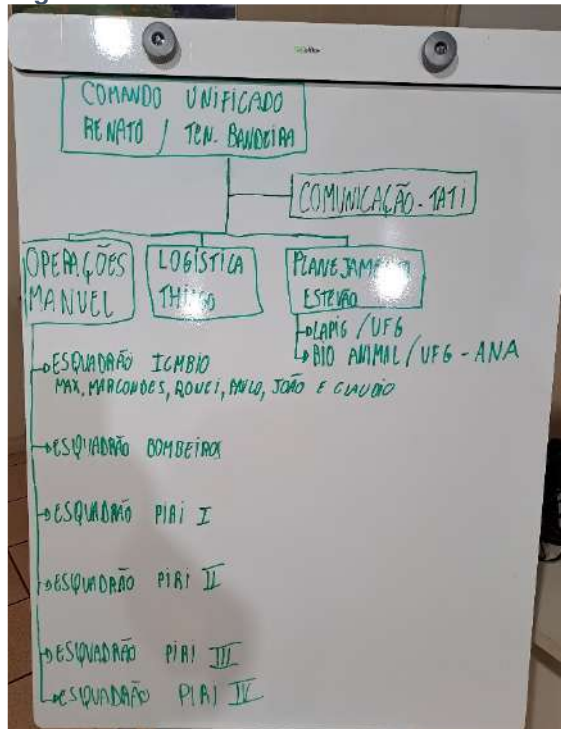 COMANDO UNIFICADO
RENATO / TEN. BANDEIRA
COMUNICAÇÃO - TATI
OPERAÇÕES
MANUEL
LOGÍSTICA
THIAGO
PLANEJAMENTO
ESTEVÃO
LAPIG / UFG
BIO ANIMAL / UFG - ANA
ESQUADRÃO ICMBIO
MAX, MARCONDES, , PAULO, JOÃO E CLAUDIO
ESQUADRÃO BOMBEIROS
ESQUADRÃO PIRI I
ESQUADRÃO PIRI II
ESQUADRÃO PIRI III
ESQUADRÃO PIRI IV